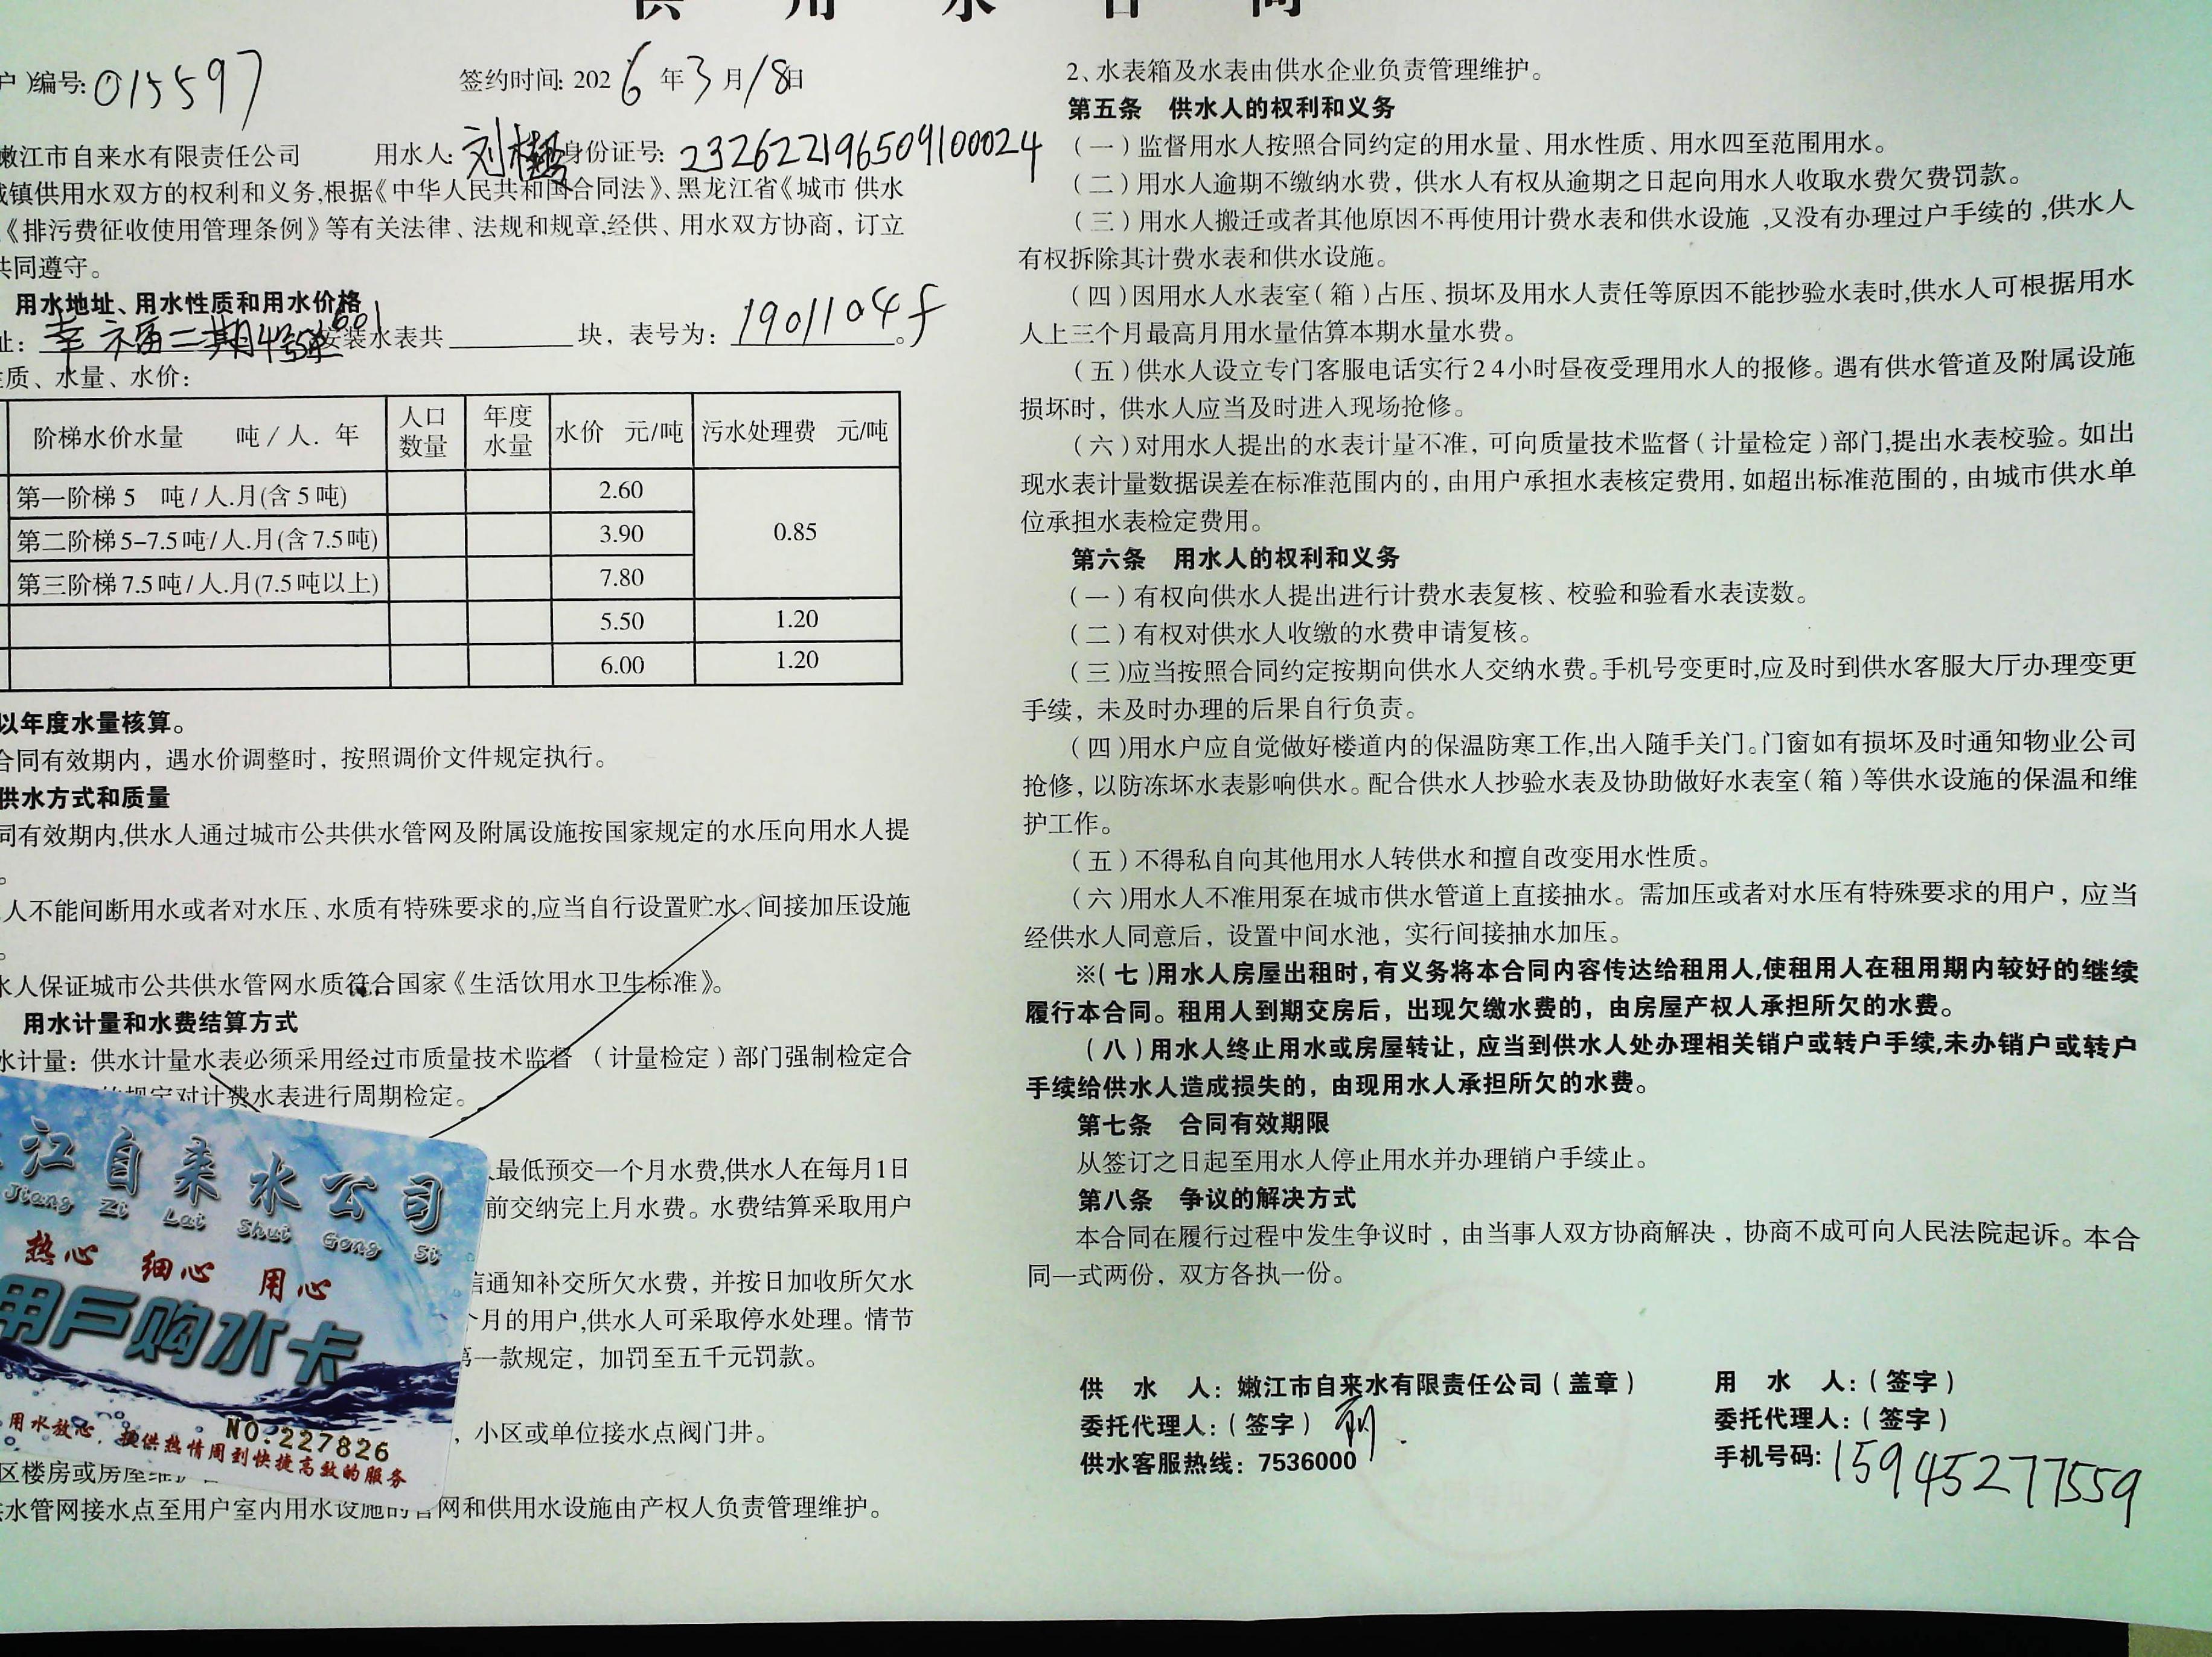 供用水合同
户)编号:015597 签约时间:2026年3月18日
嫩江市自来水有限责任公司 用水人:刘 身份证号:232622196509100024
城镇供用水双方的权利和义务,根据《中华人民共和国合同法》、黑龙江省《城市 供水
《排污费征收使用管理条例》等有关法律、法规和规章,经供、用水双方协商,订立
共同遵守。
用水地址、用水性质和用水价格
址:幸福二期4号5单601 安装水表共 块,表号为:1901104f。
性质、水量、水价:
阶梯水价水量 吨/人.年 人口数量 年度水量 水价 元/吨 污水处理费 元/吨
第一阶梯 5 吨/人.月(含 5 吨) 2.60 0.85
第二阶梯 5-7.5 吨/人.月(含 7.5 吨) 3.90
第三阶梯 7.5 吨/人.月(7.5 吨以上) 7.80
5.50 1.20
6.00 1.20
以年度水量核算。
合同有效期内,遇水价调整时,按照调价文件规定执行。
供水方式和质量
同有效期内,供水人通过城市公共供水管网及附属设施按国家规定的水压向用水人提
。
人不能间断用水或者对水压、水质有特殊要求的,应当自行设置贮水、间接加压设施
。
水人保证城市公共供水管网水质符合国家《生活饮用水卫生标准》。
用水计量和水费结算方式
水计量:供水计量水表必须采用经过市质量技术监督 (计量检定)部门强制检定合
的规定对计费水表进行周期检定。
最低预交一个月水费,供水人在每月1日
前交纳完上月水费。水费结算采取用户
信通知补交所欠水费,并按日加收所欠水
个月的用户,供水人可采取停水处理。情节
第一款规定,加罚至五千元罚款。
,小区或单位接水点阀门井。
区楼房或房屋维护
供水管网接水点至用户室内用水设施的管网和供用水设施由产权人负责管理维护。
江自来水公司
Jiang Zi Lai Shui Gong Si
热心 细心 用心
用户购水卡
NO:227826
用水放心,提供热情周到快捷高效的服务
2、水表箱及水表由供水企业负责管理维护。
第五条 供水人的权利和义务
(一)监督用水人按照合同约定的用水量、用水性质、用水四至范围用水。
(二)用水人逾期不缴纳水费,供水人有权从逾期之日起向用水人收取水费欠费罚款。
(三)用水人搬迁或者其他原因不再使用计费水表和供水设施 ,又没有办理过户手续的,供水人
有权拆除其计费水表和供水设施。
(四)因用水人水表室(箱)占压、损坏及用水人责任等原因不能抄验水表时,供水人可根据用水
人上三个月最高月用水量估算本期水量水费。
(五)供水人设立专门客服电话实行24小时昼夜受理用水人的报修。遇有供水管道及附属设施
损坏时,供水人应当及时进入现场抢修。
(六)对用水人提出的水表计量不准,可向质量技术监督(计量检定)部门,提出水表校验。如出
现水表计量数据误差在标准范围内的,由用户承担水表核定费用,如超出标准范围的,由城市供水单
位承担水表检定费用。
第六条 用水人的权利和义务
(一)有权向供水人提出进行计费水表复核、校验和验看水表读数。
(二)有权对供水人收缴的水费申请复核。
(三)应当按照合同约定按期向供水人交纳水费。手机号变更时,应及时到供水客服大厅办理变更
手续,未及时办理的后果自行负责。
(四)用水户应自觉做好楼道内的保温防寒工作,出入随手关门。门窗如有损坏及时通知物业公司
抢修,以防冻坏水表影响供水。配合供水人抄验水表及协助做好水表室(箱)等供水设施的保温和维
护工作。
(五)不得私自向其他用水人转供水和擅自改变用水性质。
(六)用水人不准用泵在城市供水管道上直接抽水。需加压或者对水压有特殊要求的用户,应当
经供水人同意后,设置中间水池,实行间接抽水加压。
※(七)用水人房屋出租时,有义务将本合同内容传达给租用人,使租用人在租用期内较好的继续
履行本合同。租用人到期交房后,出现欠缴水费的,由房屋产权人承担所欠的水费。
(八)用水人终止用水或房屋转让,应当到供水人处办理相关销户或转户手续,未办销户或转户
手续给供水人造成损失的,由现用水人承担所欠的水费。
第七条 合同有效期限
从签订之日起至用水人停止用水并办理销户手续止。
第八条 争议的解决方式
本合同在履行过程中发生争议时,由当事人双方协商解决,协商不成可向人民法院起诉。本合
同一式两份,双方各执一份。
供 水 人:嫩江市自来水有限责任公司(盖章) 用 水 人:(签字)
委托代理人:(签字) 委托代理人:(签字)
供水客服热线:7536000 手机号码:15945277559